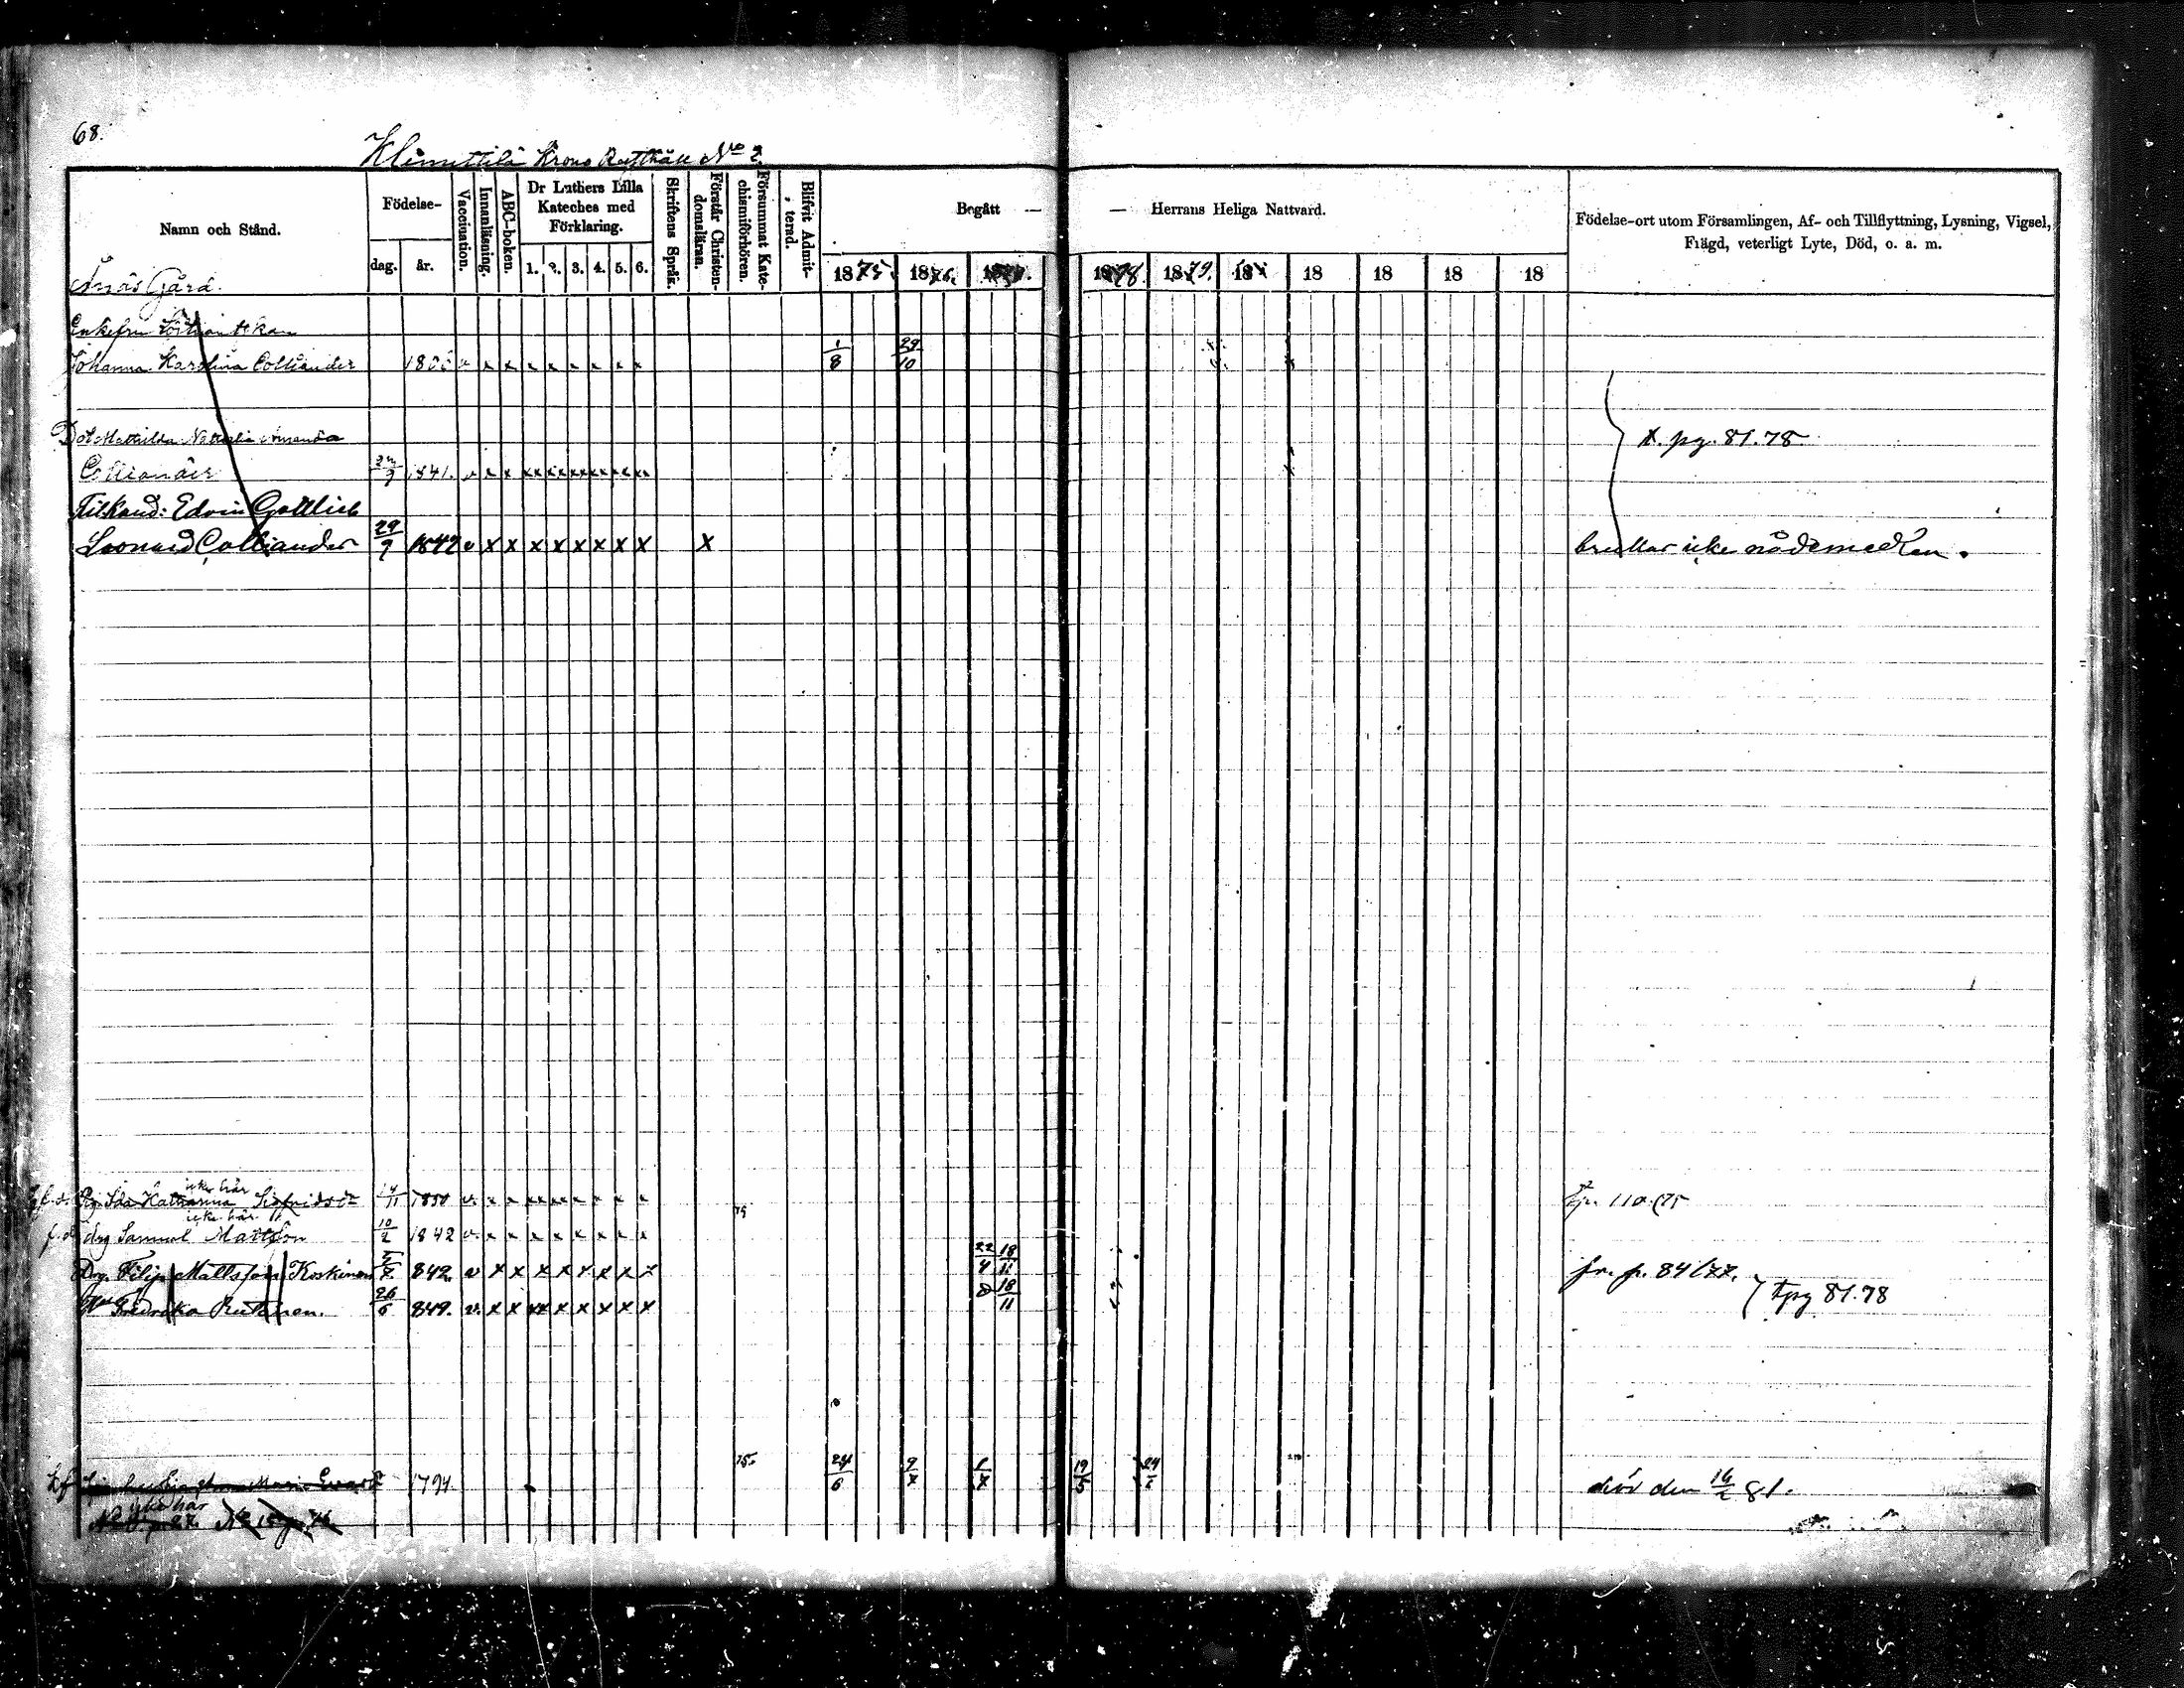 68.
Klimittilä Krono Rusthåll No 2.
Namn och Stånd.
Födelse-
dag.
år.
Vaccination.
Innanläsning.
ABC-boken.
Dr Luthers Lilla Kateches med Förklaring.
1. 2. 3. 4. 5. 6.
Skriftens Språk.
Förstår Christen-domsläran.
Försummat Kate-chismiförhören.
Blifvit Admit-terad.
Begått — — Herrans Heliga Nattvard.
1875. 1876. 1877. 1878. 1879. 18 18 18 18 18
Födelse-ort utom Församlingen, Af- och Tillflyttning, Lysning, Vigsel, Frägd, veterligt Lyte, Död, o. a. m.
Ånäs Gård.
Enkefru
Johanna Karolina Colliander v x x x x x x x x 1/8 29/10
Dot Mathilda Amanda t. pg. 81.78
Colliander 9 1841. v x x xx xx xx xx xx xx
Fil Kand: Edvin Gottlieb
Leonard Colliander 29/9 1842 v x x x x x x x x x brukar icke nådemedlen.
icke här
Pig. Ida Katharina Sigfridsdr 11 1850 v. x x xx xx x x x x 75 110/75
icke här
f.d. drg Samuel Mattsson 10/2 1842 v. x x x x x x x x
Drg. Filip Mattsson Koskinen 842. v x x x x x x x x 22/4 18/11 fr. p. 84/77.
Hu Fredrika Rutanen. 26/6 849. v. x x xx x x x x x 18/11 t pg 81.78
Maria 1794. 75. 24/6 19/5 död den 14/2 81.
icke här